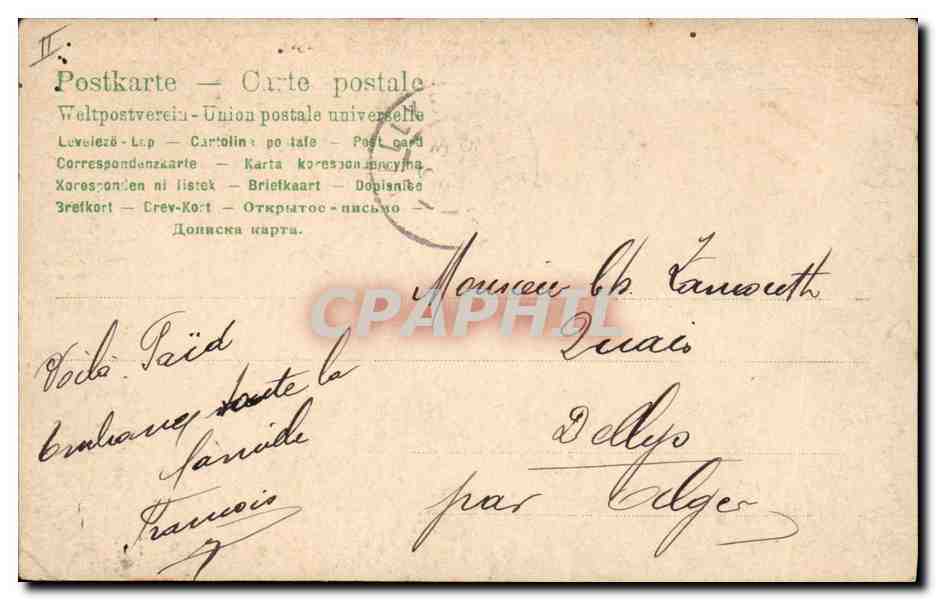 II.
Postkarte — Carte postale
Weltpostverein - Union postale universelle
Levelező-Lap — Cartolina postale — Post card
Correspondenzkarte — Karta korespondencyjna
Korespondenční lístek — Briefkaart — Dopisnice
Brefkort — Brev-Kort — Открытое-письмо —
Дописна карта.
Monsieur Ch. Zamouth
Quais
Dellys
par Alger
CPAPHIL
Voilà Païd
Embrasse toute la
famille
François